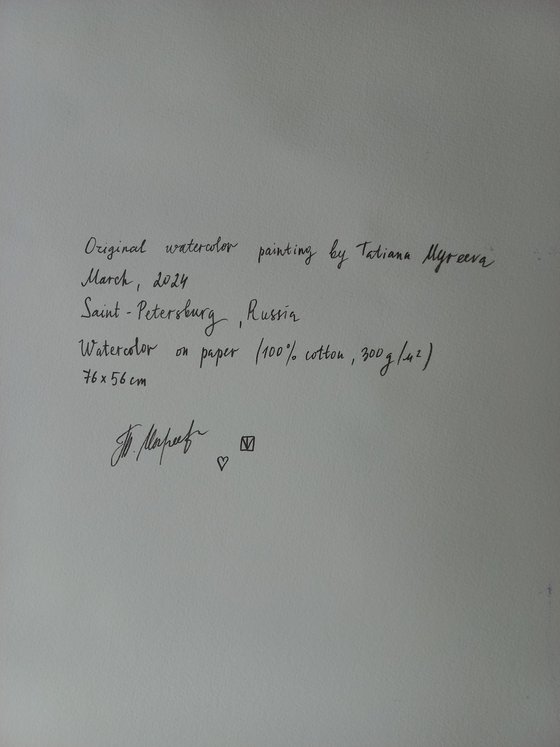 Original watercolor painting by Tatiana Myreeva
March, 2024
Saint-Petersburg, Russia
Watercolor on paper (100% cotton, 300g/м²)
76 x 56 cm